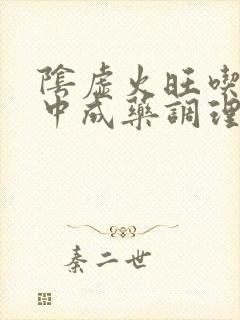 陰虛火旺喫
中成藥調理
秦二世